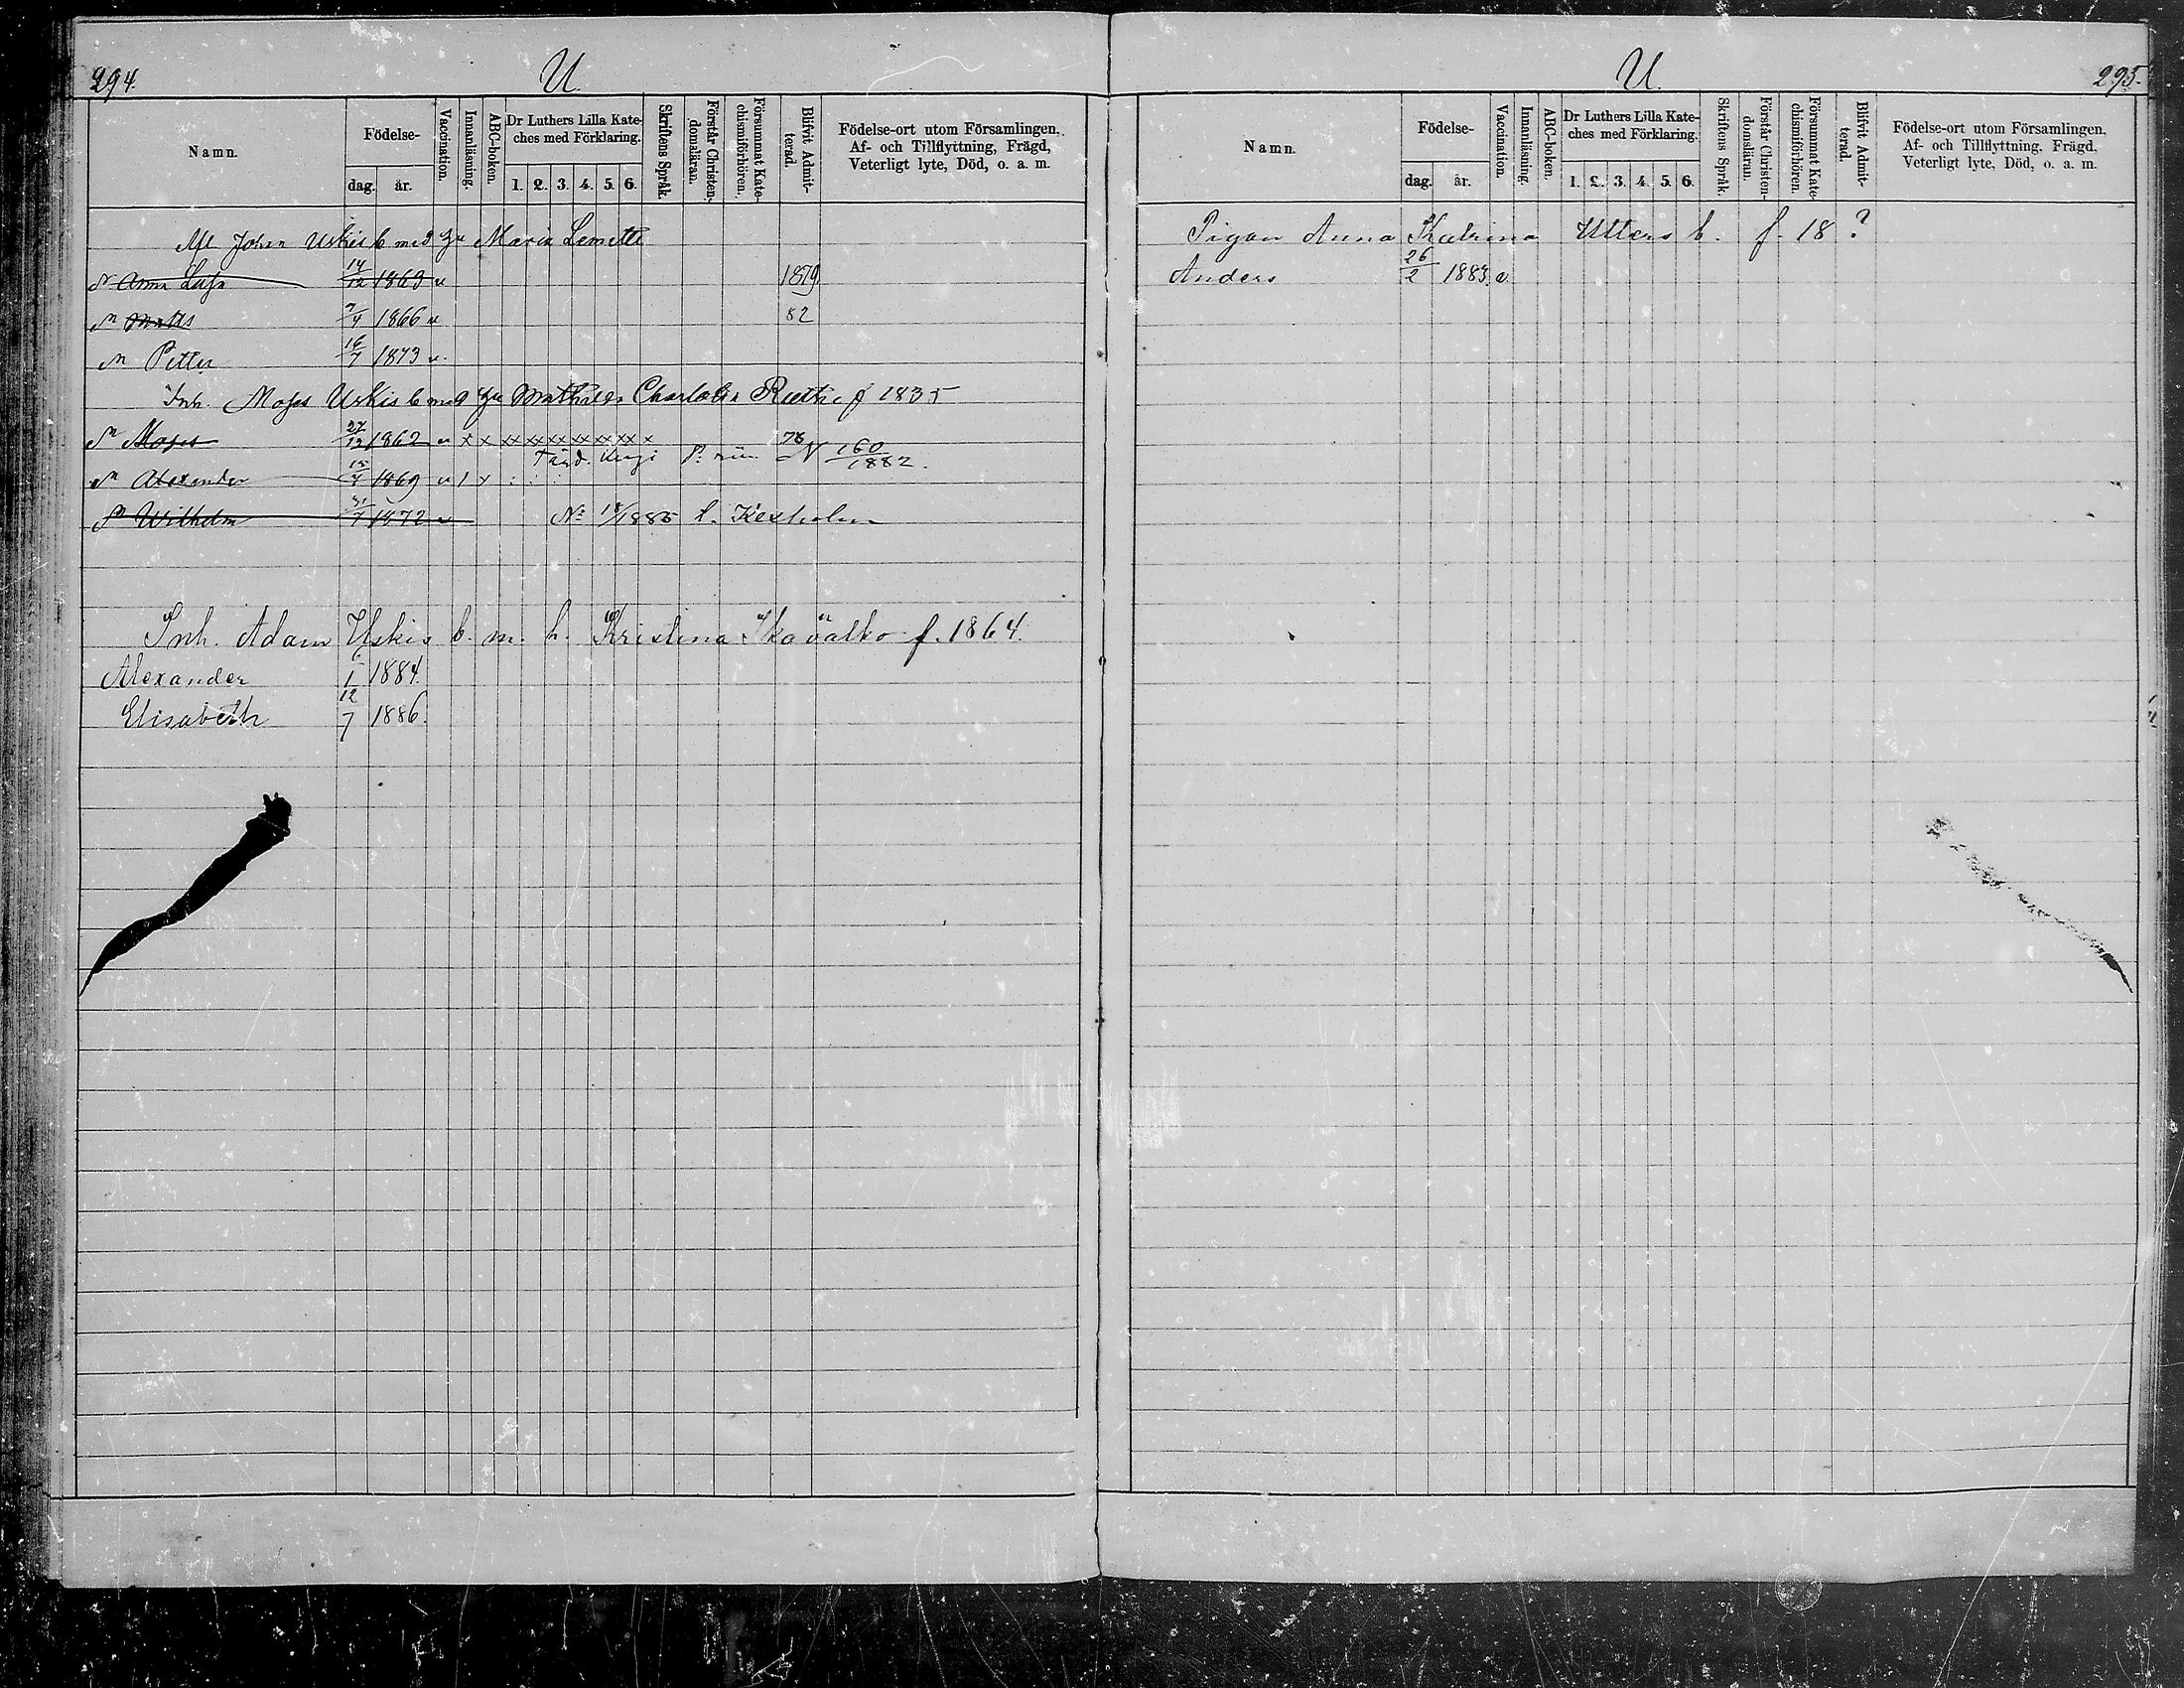 294.
U.
Namn.
Födelse-
dag. år.
Vaccination.
Innanläsning.
ABC-boken.
Dr Luthers Lilla Kate-
ches med Förklaring.
1. 2. 3. 4. 5. 6.
Skriftens Språk.
Förstår Christen-
domsläran.
Försummat Kate-
chismiförhören.
Blifvit Admit-
terad.
Födelse-ort utom Församlingen,
Af- och Tillflyttning, Frägd,
Veterligt lyte, Död, o. a. m.
John Uskis b med Maria Lemetti
Anna Lisa 14/12 1863 v 1879
Matts 7/4 1866 v 82
Petter 16/7 1873 v.
Inh. Moses Uskis b med Mathilda Charlotta f 1835
Moses 27/12 1862 v x x xx xx xx xx xx xx x 78
N 160/1882.
Alexander 1869 v
Wilhelm 31/7 1872 v No 18/1885 t. Kexholm
Inh. Adam Uskis b. m. h. Kristina f. 1864.
Alexander 1 1884.
Elisabeth 12/7 1886.
U.
295.
Namn.
Födelse-
dag. år.
Vaccination.
Innanläsning.
ABC-boken.
Dr Luthers Lilla Kate-
ches med Förklaring.
1. 2. 3. 4. 5. 6.
Skriftens Språk.
Förstår Christen-
domsläran.
Försummat Kate-
chismiförhören.
Blifvit Admit-
terad.
Födelse-ort utom Församlingen,
Af- och Tillflyttning, Frägd,
Veterligt lyte, Död, o. a. m.
Pigan Anna Katrina Utters b. f. 18 ?
Anders 26/2 1883. v.